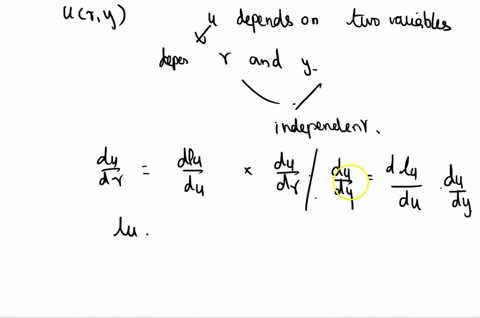 u(r,y) u depends on two variables
depen r and y.
independent.
dy/dr = dlu/du × du/dr / dy/dy = dlu/du du/dy
lu.